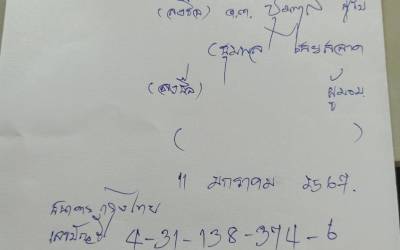 (ลงชื่อ) จ.ต. ชุมพล ผู้รับ
(ชุมพล
(ลงชื่อ) ผู้มอบ
( )
11 มกราคม 2567.
ธนาคารกรุงไทย
เลขบัญชี 4-31-138-374-6